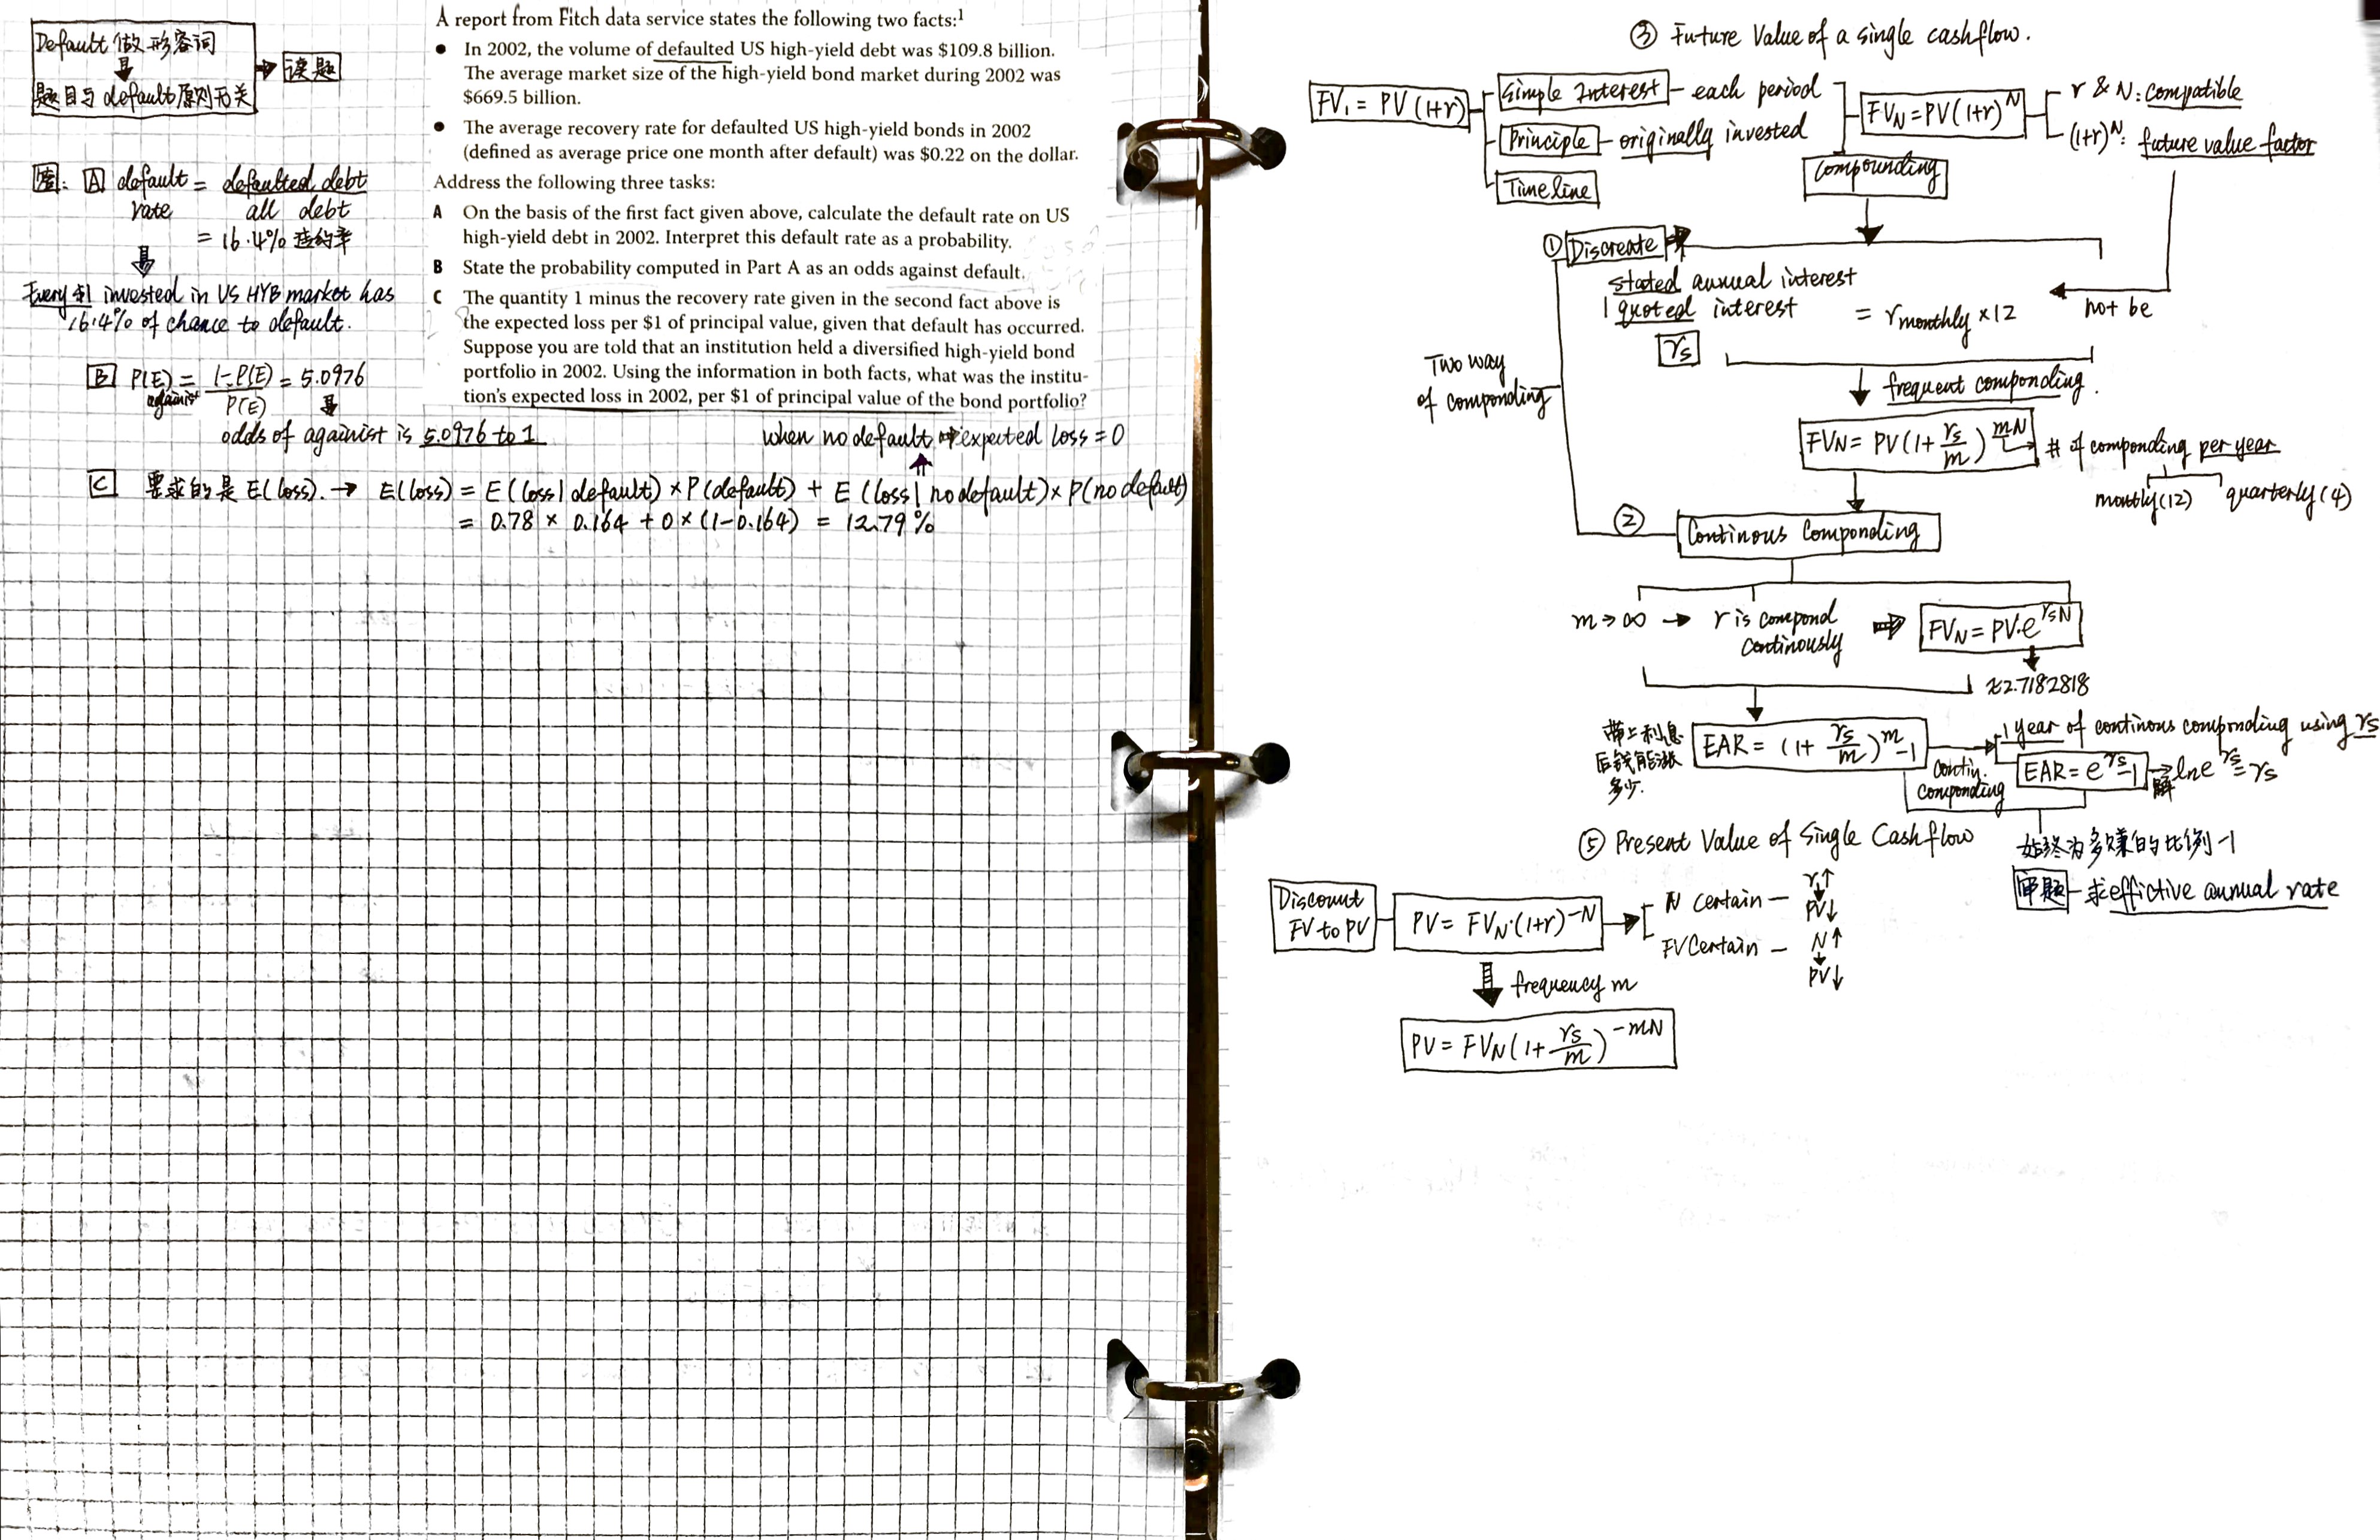 Default 做形容词
题目与 default 原则无关
读题
A report from Fitch data service states the following two facts:1
• In 2002, the volume of defaulted US high-yield debt was $109.8 billion.
The average market size of the high-yield bond market during 2002 was
$669.5 billion.
• The average recovery rate for defaulted US high-yield bonds in 2002
(defined as average price one month after default) was $0.22 on the dollar.
Address the following three tasks:
A On the basis of the first fact given above, calculate the default rate on US
high-yield debt in 2002. Interpret this default rate as a probability.
B State the probability computed in Part A as an odds against default.
C The quantity 1 minus the recovery rate given in the second fact above is
the expected loss per $1 of principal value, given that default has occurred.
Suppose you are told that an institution held a diversified high-yield bond
portfolio in 2002. Using the information in both facts, what was the institu-
tion's expected loss in 2002, per $1 of principal value of the bond portfolio?
答: A default rate = defaulted debt / all debt
= 16.4% 违约率
Every $1 invested in US HYB market has
16.4% of chance to default.
B P(E) againist = 1-P(E) / P(E) = 5.0976
odds of againist is 5.0976 to 1
when no default ⇒ expected loss = 0
C 要求的是 E(loss). → E(loss) = E(loss| default) × P(default) + E (loss| no default) × P(no default)
= 0.78 × 0.164 + 0 × (1-0.164) = 12.79%
③ Future Value of a single cashflow.
FV₁ = PV (1+r)
Simple Interest - each period
Principle - originally invested
Timeline
FVN = PV(1+r)^N
r & N: compatible
(1+r)^N: future value factor
Compounding
① Discreate
stated annual interest
| quoted interest = r monthly × 12
not be
rs
Two way
of componding
frequent componding.
FVN = PV(1+ rs/m)^mN
# of componding per year
montly(12) quarterly(4)
② Continous Componding
m → ∞ → r is compond
continously
⇒ FVN = PV·e^rsN
≈2.7182818
带上利息
后钱能涨
多少.
EAR = (1+ rs/m)^m -1
contin.
componding
1 year of continous componding using rs
EAR = e^rs -1
解 ln e^rs = rs
始终为多赚的比例 -1
审题 - 求 effictive annual rate
⑤ Present Value of Single Cashflow
Discount
FV to PV
PV = FVN·(1+r)^-N
N Certain - r↑
PV↓
FV Certain - N↑
PV↓
frequency m
PV = FVN (1+ rs/m)^-mN